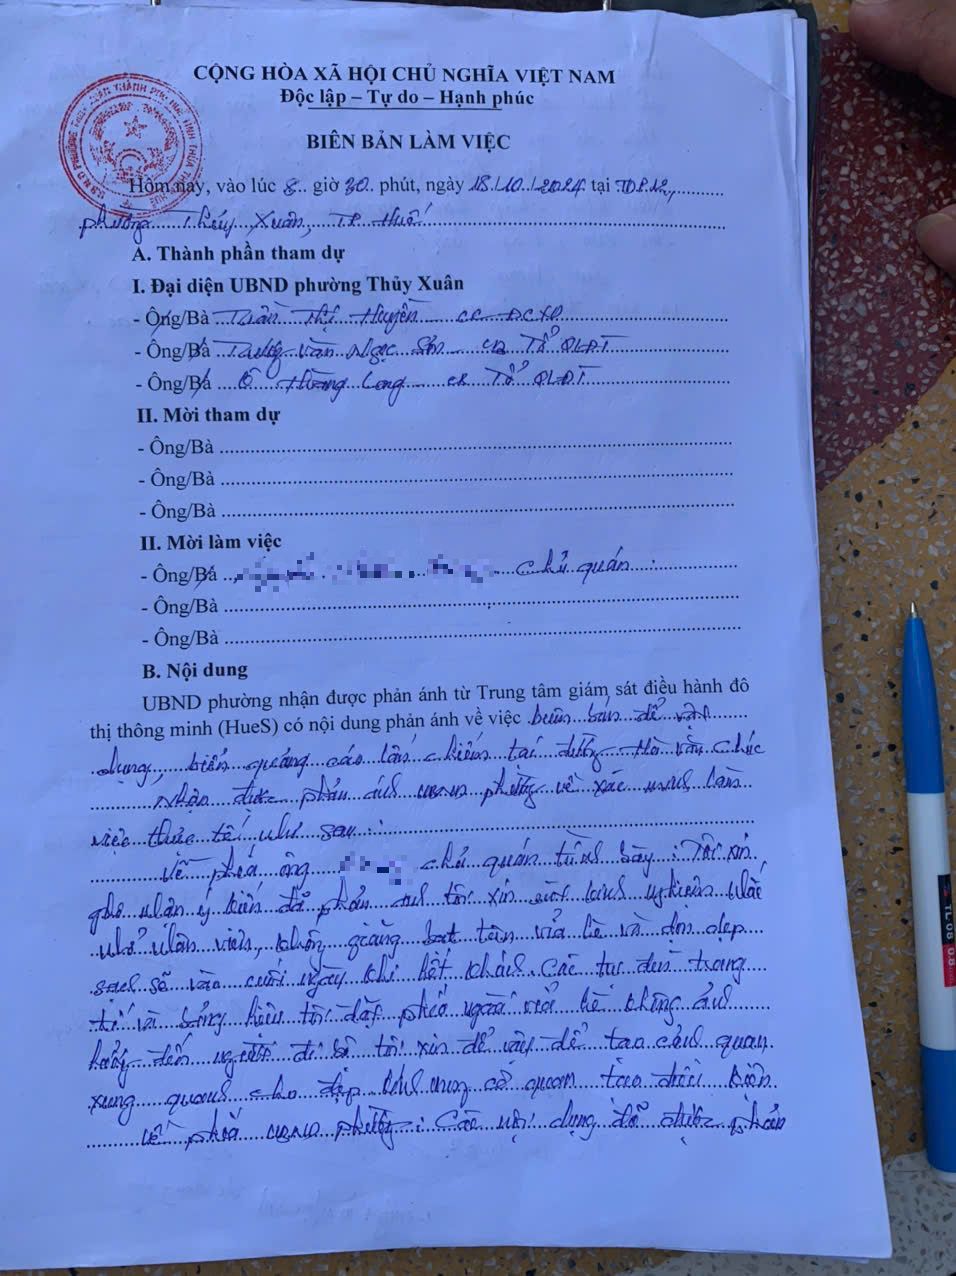 CỘNG HÒA XÃ HỘI CHỦ NGHĨA VIỆT NAM
Độc lập – Tự do – Hạnh phúc
BIÊN BẢN LÀM VIỆC
Hôm nay, vào lúc 8 giờ 30 phút, ngày 18/10/2024 tại TDP 12,
phường Thủy Xuân, TP Huế
A. Thành phần tham dự
I. Đại diện UBND phường Thủy Xuân
- Ông/Bà Trần Thị Huyền CC ĐCXD
- Ông/Bà Văn Ngọc Sơn Tổ QLĐT
- Ông/Bà Hoàng Long Tổ QLĐT
II. Mời tham dự
- Ông/Bà
- Ông/Bà
- Ông/Bà
II. Mời làm việc
- Ông/Bà chủ quán
- Ông/Bà
- Ông/Bà
B. Nội dung
UBND phường nhận được phản ánh từ Trung tâm giám sát điều hành đô
thị thông minh (HueS) có nội dung phản ánh về việc buôn bán để vật
dụng, biển quảng cáo lấn chiếm tại đường
nhận được phản ánh UBND phường về xác minh làm
việc thực tế như sau:
Về phía ông chủ quán trình bày: Tôi xin
ghi nhận ý kiến đã phản ánh tôi xin nhắc
nhở nhân viên, không giăng bạt trên vỉa hè và dọn dẹp
sạch sẽ vào cuối ngày khi hết khách. Các trang
trí và bảng hiệu tôi đặt phía ngoài vỉa hè không ảnh
hưởng đến người đi bộ tôi xin để vậy để tạo cảnh quan
xung quanh cho đẹp mong cơ quan tạo điều kiện
Về phía UBND phường: Các nội dung đã được phản
TL-08 0.8